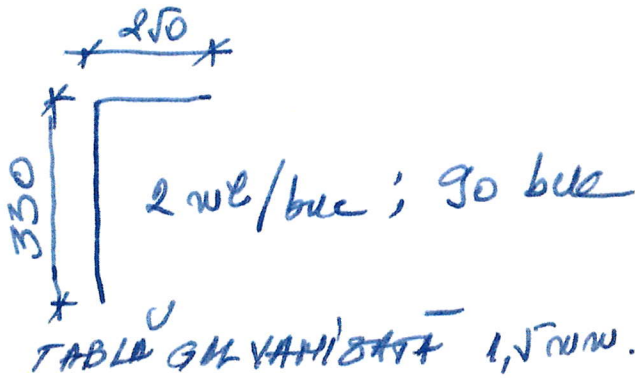 250
330
2 ml/buc ; 90 buc
TABLĂ GALVANIZATĂ 1,5 mm.